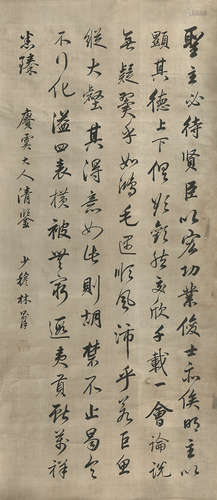 聖主必待賢臣以宏功業俊士亦俟明主以
顯其德上下俱欲歡然交欣千載一會論說
無疑翼乎如鴻毛遇順風沛乎若巨魚
縱大壑其得意如此則胡禁不止曷令
不行化溢四表橫被無窮遐夷貢獻萬祥
畢溱 賡雲大人清鑒
少穆林